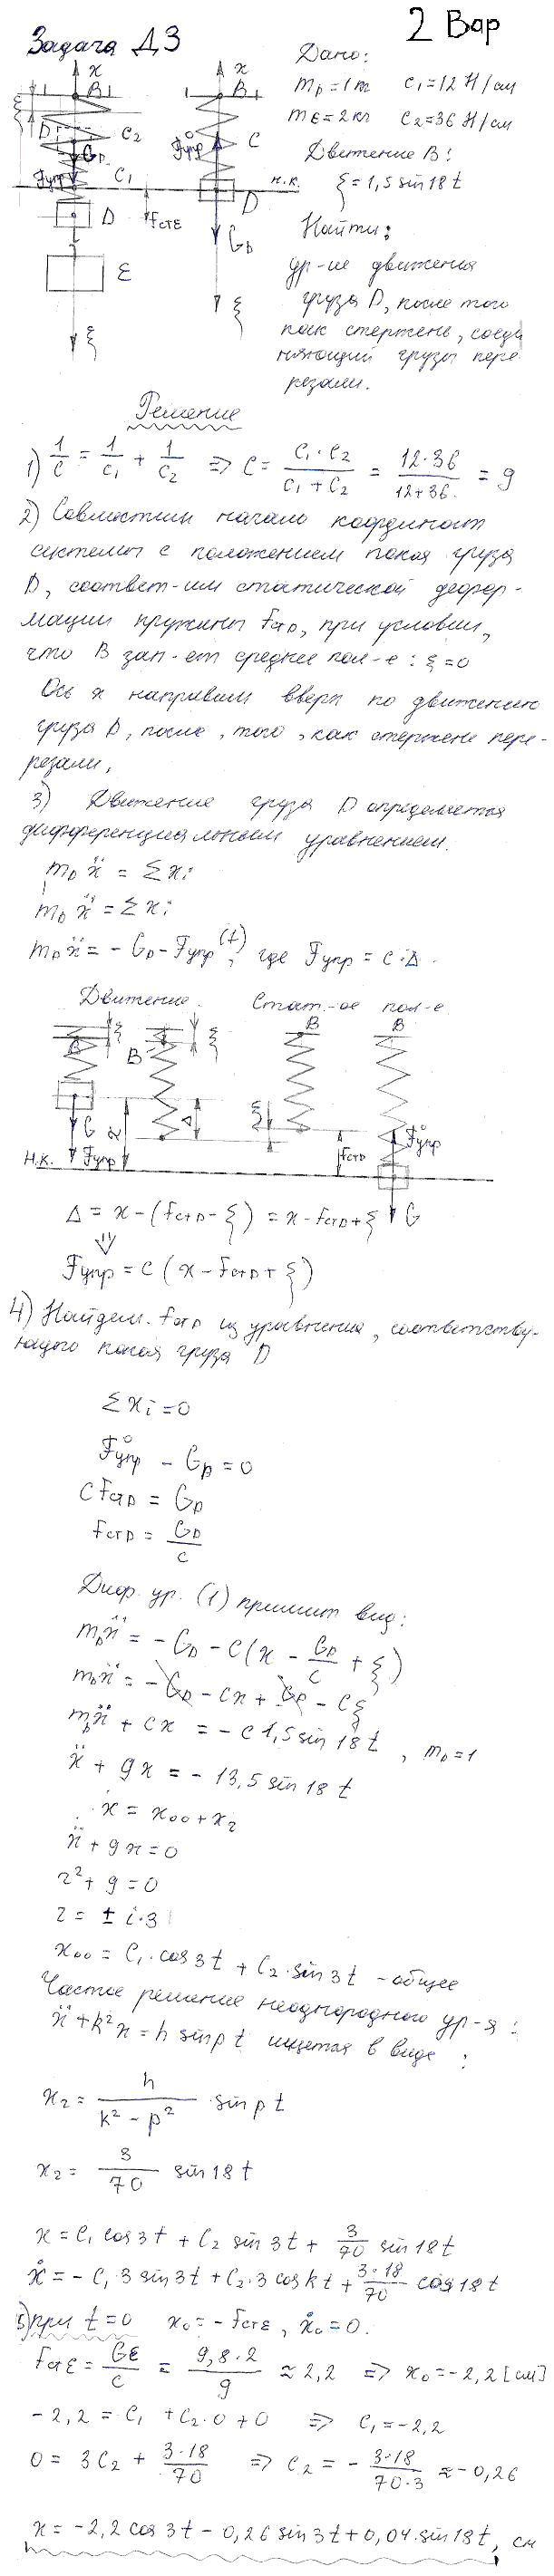 2 Вар
Задача Д3
Дано:
m_D = 1 кг c₁ = 12 Н/см
m_E = 2 кг c₂ = 36 Н/см
Движение В:
ξ = 1,5 sin 18 t
Найти:
ур-ие движения
груза D, после того
как стержень, соеди
няющий грузы пере
резали.
x
B
ξ
D
c₂
G_D
Fупр
c₁
D
fстE
E
ξ
x
B
F̊упр
C
н.к.
D
G_D
ξ
Решение
1) 1/c = 1/c₁ + 1/c₂ ⇒ c = c₁·c₂/(c₁+c₂) = 12·36/(12+36) = 9
2) Совместим начало координат
системы с положением покоя груза
D, соответ-им статической дефор-
мации пружины fстD, при условии,
что В зан-ет среднее пол-е: ξ=0
Ось x направим вверх по движению
груза D, после, того, как стержень пере-
резали,
3) Движение груза D определяется
дифференциальным уравнением.
m_D ẍ = Σxᵢ
m_D ẍ = Σxᵢ
m_D ẍ = - G_D - Fупр (1), где Fупр = c·Δ.
Движение. Стат-ое пол-е
B
B
ξ
ξ
B
B
G
Fупр
x
Δ
ξ
fстD
F̊упр
G
н.к.
Δ = x - (fстD - ξ) = x - fстD + ξ
⇓
Fупр = c (x - fстD + ξ)
4) Найдем fстD из уравнения, соответству-
ющего покоя груза D
Σxᵢ = 0
F̊упр - G_D = 0
c fстD = G_D
fстD = G_D/c
Диф. ур. (1) примит вид:
m_D ẍ = - G_D - c(x - G_D/c + ξ)
m_D ẍ = - G_D - cx + G_D - cξ
m_D ẍ + cx = - c 1,5 sin 18 t , m_D = 1
ẍ + 9x = - 13,5 sin 18 t
x = x₀₀ + x₂
ẍ + 9x = 0
z² + 9 = 0
z = ± i·3
x₀₀ = C₁·cos 3t + C₂·sin 3t - общее
Частое решение неоднородного ур-я:
ẍ + k²x = h sin pt ищется в виде:
x₂ = h/(k² - p²) · sin pt
x₂ = 3/70 sin 18 t
x = C₁ cos 3t + C₂ sin 3t + 3/70 sin 18t
ẋ = - C₁ 3 sin 3t + C₂·3 cos kt + 3·18/70 cos 18 t
5) при t = 0 x₀ = - fстE, ẋ₀ = 0.
fстE = G_E/c = 9,8·2/9 ≈ 2,2 ⇒ x₀ = -2,2 [см]
- 2,2 = C₁ + C₂·0 + 0 ⇒ C₁ = -2,2
0 = 3C₂ + 3·18/70 ⇒ C₂ = - 3·18/70·3 ≈ -0,26
x = -2,2 cos 3t - 0,26 sin 3t + 0,04·sin 18t, см